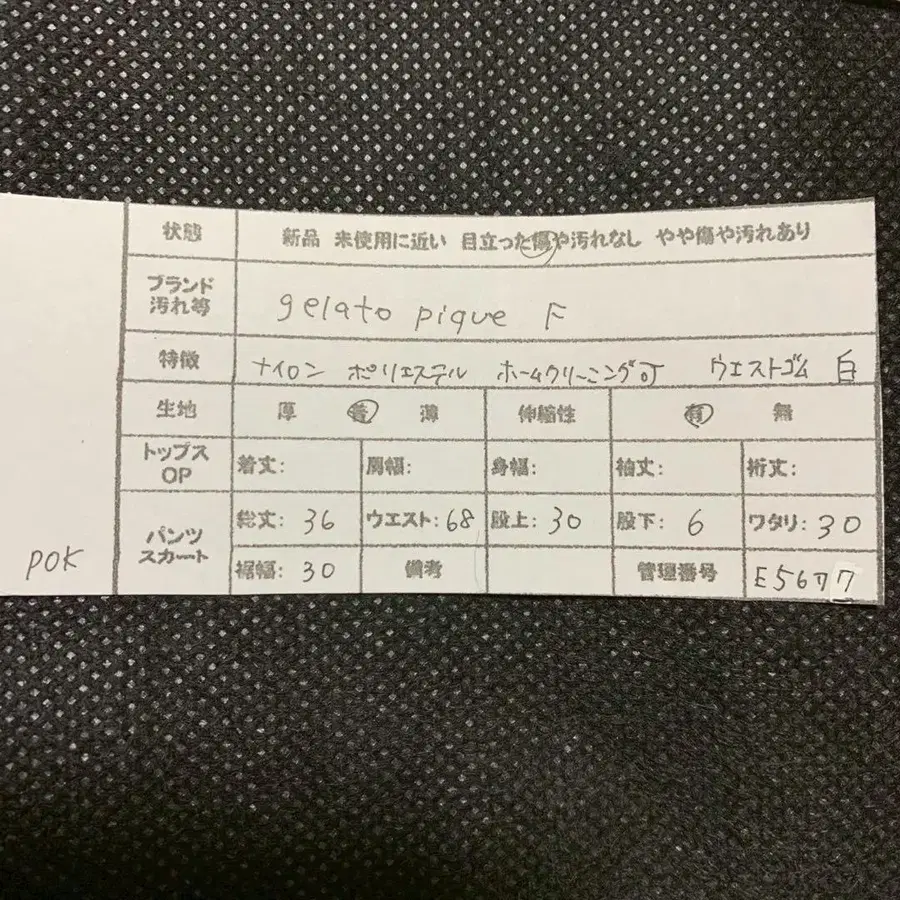 状態 新品 未使用に近い 目立った傷や汚れなし やや傷や汚れあり
ブランド
汚れ等 gelato pique F
特徴 ナイロン ポリエステル ホームクリーニング可 ウエストゴム 白
生地 厚 普 薄 伸縮性 有 無
トップス
OP 着丈: 肩幅: 身幅: 袖丈: 裄丈:
パンツ
スカート 総丈: 36 ウエスト: 68 股上: 30 股下: 6 ワタリ: 30
裾幅: 30 備考 管理番号 E5677
POK